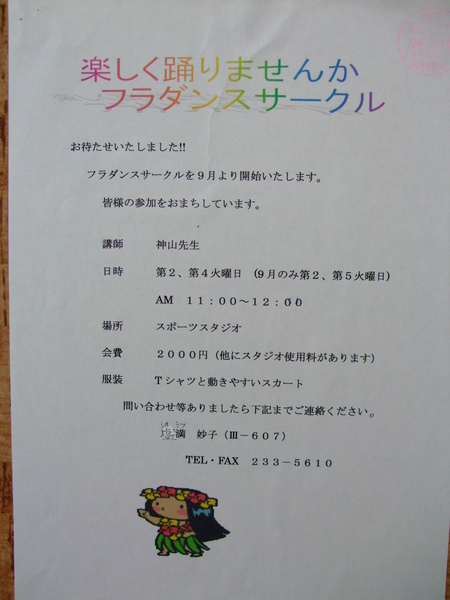 楽しく踊りませんか
フラダンスサークル
お待たせいたしました!!
フラダンスサークルを9月より開始いたします。
皆様の参加をおまちしています。
講師 神山先生
日時 第2、第4火曜日 (9月のみ第2、第5火曜日)
AM 11:00~12:00
場所 スポーツスタジオ
会費 2000円(他にスタジオ使用料があります)
服装 Tシャツと動きやすいスカート
問い合わせ等ありましたら下記までご連絡ください。
満 妙子(Ⅲ-607)
TEL・FAX 233-5610